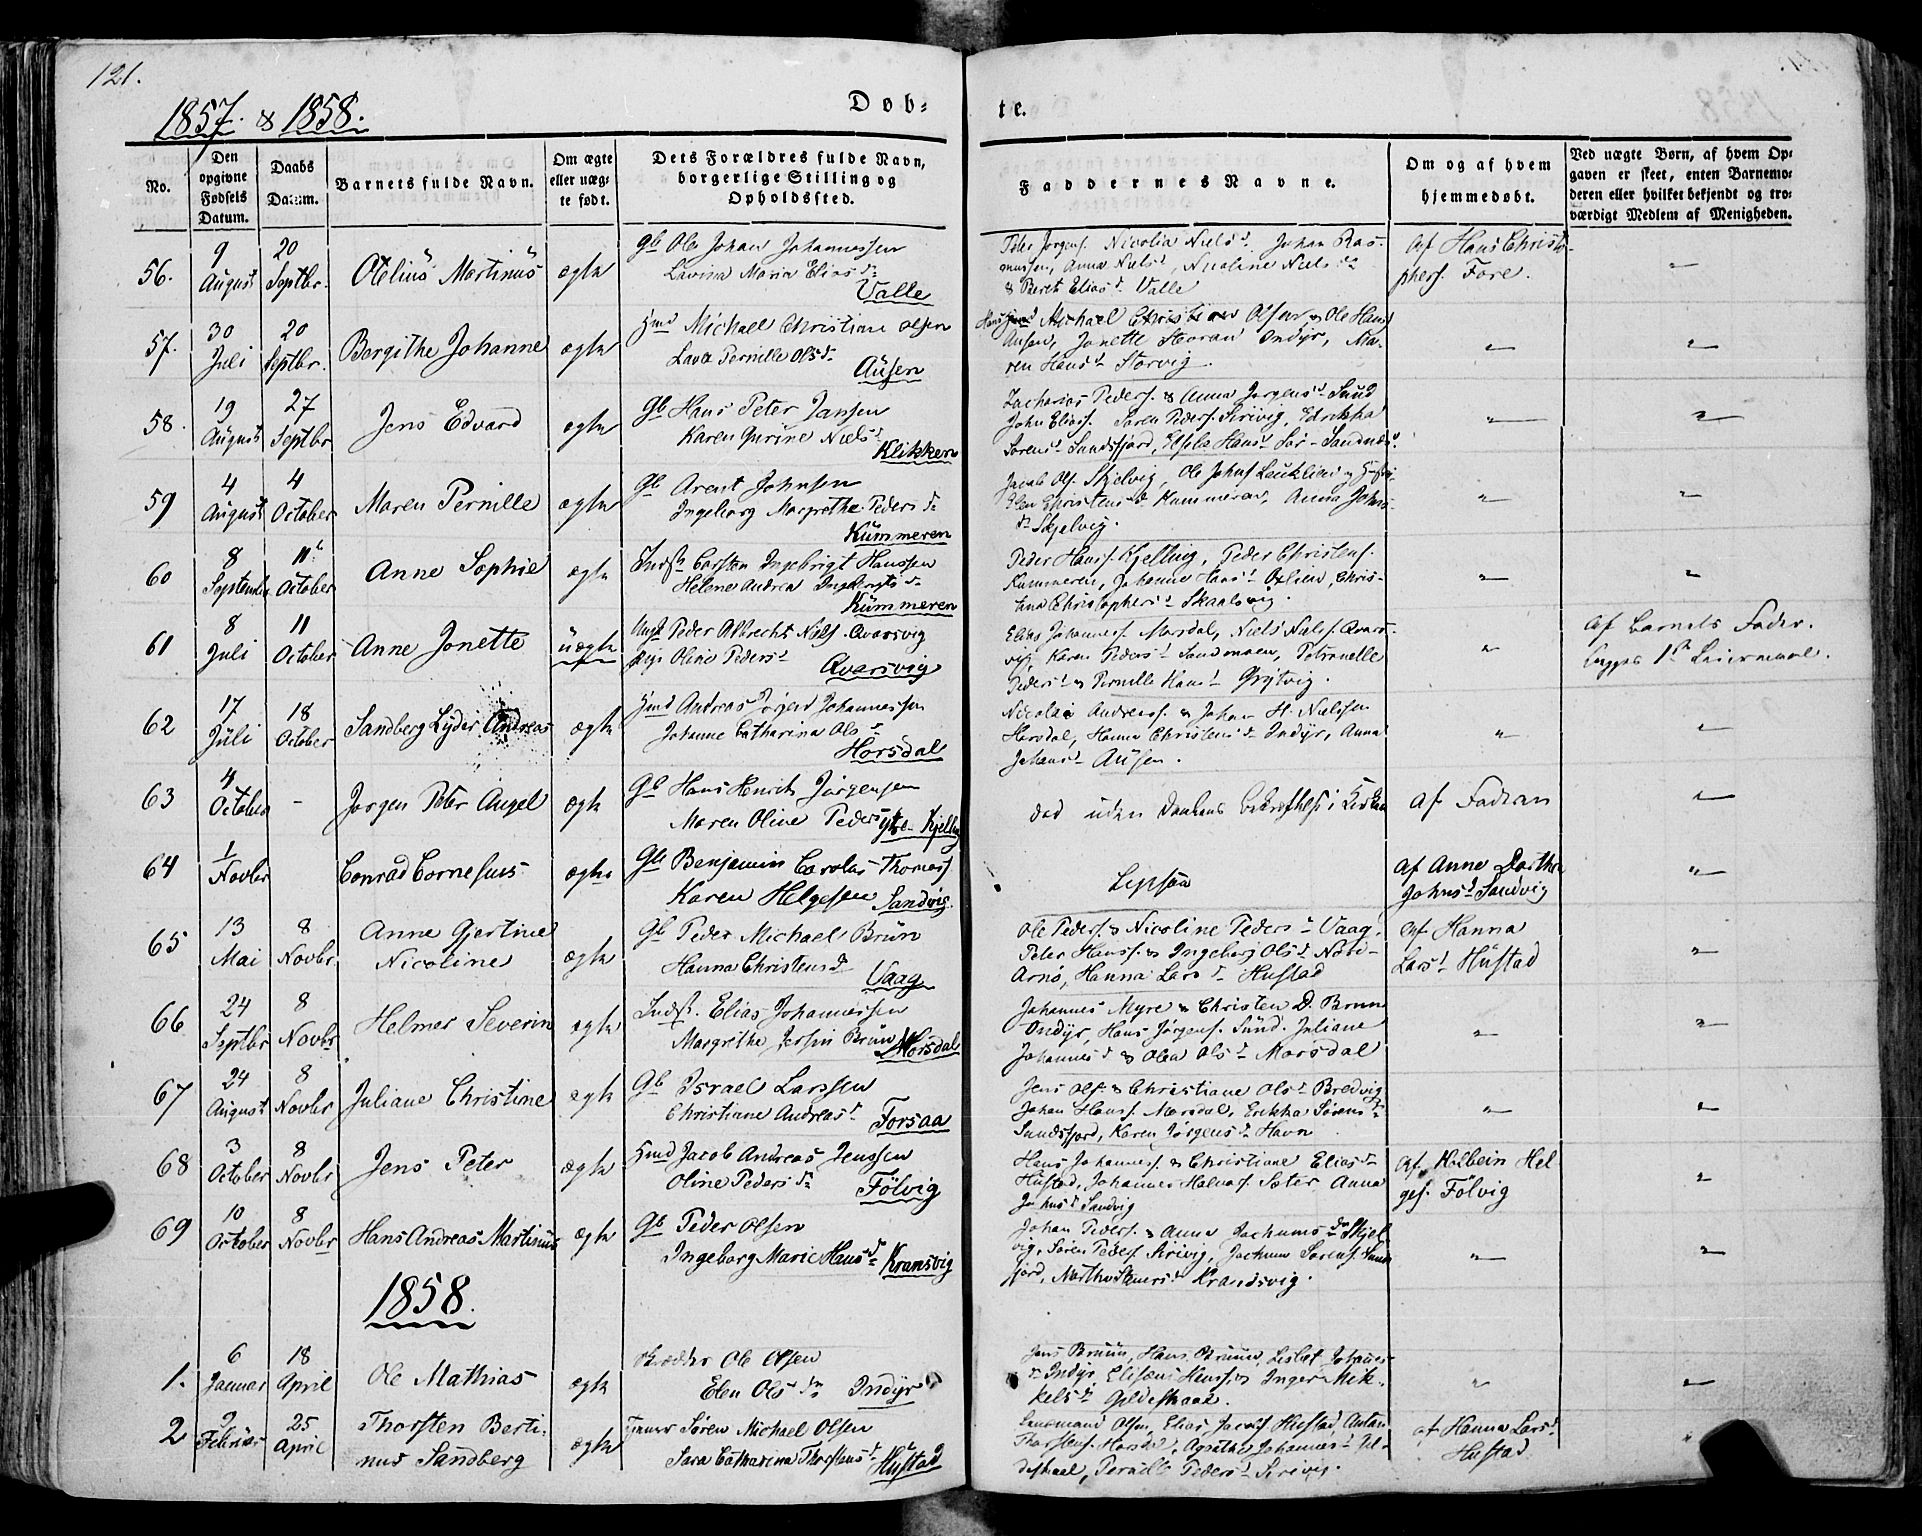 121.
1857. & 1858.
Døb-
te.
No.
Den opgivne Fødsels Datum.
Daabs Datum.
Barnets fulde Navn.
Om ægte eller uægte født.
Dets Forældres fulde Navn, borgerlige Stilling og Opholdssted.
Faddernes Navne.
Om og af hvem hjemmedøbt.
Ved uægte Børn, af hvem Opgaven er skeet, enten Barnemoderen eller hvilket bekjendt og troværdigt Medlem af Menigheden.
56. 9 August 20 Septbr. Otelius Martinus ægte
Gb Ole Johan Johannessen
Lavina Maria Eliasd.
Valle
Peder Jørgens. Nicolia Nielsd. Johan Ras-
mussen, Anna Nielsd, Nicoline Nielsd
& Berit Eliasd. Valle
Af Hans Christo-
phers. Fore.
57. 30 Juli 20 Septbr. Bergithe Johanne ægte
Hmd Michael Christian Olsen
Lava Pernille Olsd.
Ausen
Michael Christian Olsen & Ole Hans
Ausen, Janette Indyr, Ma-
ren Hansd Storvig.
58. 19 August 27 Septbr Jens Edvard ægte
Gb Hans Peter Jansen
Karen Gurine Nielsd
Klikken
Zacharias Peders. & Anna Jørgensd Sund
John Elias. Søren Peders. Serivig, Edrikka
Sørensd Sundsfjord, Elsela Hansd Sør-Sandnæs.
59 4 August 4 October Maren Pernille ægte
Gb Arent Johnsen
Ingeborg Margrethe Pedersd.
Kummeren
Jacob Ols. Skjelvig, Ole Johns
Elen Christensd Kummeren, Anna Johns-
d. Skjelvig.
60 8 September 11 October Anne Sophie ægte
Indst Carsten Ingebrigt Hanssen
Helene Andrea Ingebrigtsd.
Kummeren
Peder Hans. Kjelling, Peder Christens.
Kummeren, Johanne Hansd Oxlien, Chris-
tina Christophersd Skaalsvig.
61 8 Juli 11 October Anne Jonette uægte
Ungk Peder Albrecht Niels. Avarsvig
Pige Oline Pedersd
Avarsvig
Elias Johannes. Morsdal, Niels Niels. Avars-
vig, Karen Pedersd Sandmoen, Petronelle
Pedersd & Pernille Hansd Grytvig.
Af Barnets Fader.
begges 1ste Leiermaal.
62 17 Juli 18 October Sandberg Lyder Andreas ægte
Hmd Andreas Jørgen Johannessen
Johanne Catharina Olsd
Horsdal
Nicolai Andreas. & Johan H. Nielssen
Horsdal, Hanna Christensd Indyr, Anna
Johansd Ausen.
63 4 October - Jørgen Peter Angel ægte
Gb Hans Henrik Jørgensen
Maren Oline Pedersd
Ytre Kjelling
Død uden Daabens Bekræftelse i Kirken
Af Faderen
64 1 Novbr Conrad Cornelius ægte
Gb Benjamin Carolus Thomess.
Karen Helgesen Sandvig.
Lepsøa
Af Anne Dorthea
Johnsd Sandvig
65 13 Mai 8 Novbr. Anne Gjertine
Nicoline ægte
Gb Peder Michael Brun
Hanna Christensd
Vaag
Ole Peders. & Nicoline Pedersd Vaag.
Peter Hans. & Ingeborg Olsd Nord-
Arnø, Hanna Larsd Hustad
Af Hanna
Larsd Hustad
66 24 Septbr 8 Novbr Helmer Severin ægte
Indst. Elias Johannessen
Margrethe Brun Morsdal
Johannes Myre & Christen D. Brun
Indyr, Hans Jørgens. Sund. Juliane
Johannesd & Olea Olsd Morsdal
67 24 August 8 Novbr Juliane Christine ægte
Gb Israel Larssen
Christiane Andreasd
Forsaa
Jens Ols. & Christiane Olsd Bredvig
Johan Hans. Morsdal, Erikka Sørensd
Sundsfjord, Karen Jørgensd Havn
68 3 October 8 Novbr Jens Peter ægte
Hmd Jacob Andreas Jenssen
Oline Pedersd
Følvig
Hans Johannes. & Christiane Eliasd
Hustad, Johannes Halvors. Sæter Anna
Johnsd Sandvig
Af Kolbein Hel
ges. Følvig
69 10 October 8 Novbr Hans Andreas Martinus ægte
Gb Peder Olsen
Ingeborg Marie Hansd Kransvig
Johan Peders. & Anna Jochumsd Skjel-
vig, Søren Peders. Serivig, Jochum Sørens. Sunds-
fjord, Kransvig.
1858.
1. 6 Januar 18 April Ole Mathias ægte
Skrædder Ole Olsen
Elen Olsd Indyr
Jens Bruun, Hans Bruun, Johannes-
Indyr, Hanss. & Inger Mik-
kelsd Gildeskaal.
2 2 Februar 25 April Thorsten Berti-
nus Sandberg ægte
Tjener Søren Michael Olsen
Sara Catharina Thorstensd Hustad
Olsen, Elias Jacobs. Hustad, Anton
Thorstens. Horsdal, Agathe Johannesd Gil-
deskaal, Pernille Pedersd Serivig.
af Hanna Larsd
Hustad